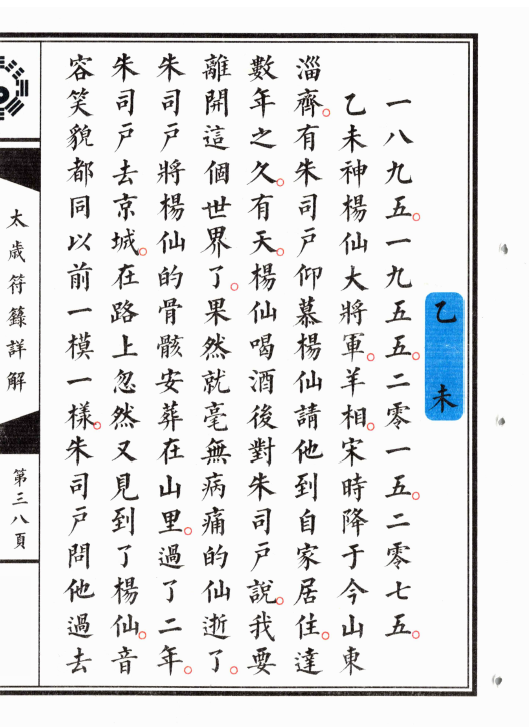 乙未
一八九五。一九五五。二零一五。二零七五。
乙未神楊仙大將軍。羊相。宋時降于今山東
淄齊。有朱司戶仰慕楊仙請他到自家居住。達
數年之久。有天。楊仙喝酒後對朱司戶說。我要
離開這個世界了。果然就毫無病痛的仙逝了。
朱司戶將楊仙的骨骸安葬在山里。過了二年。
朱司戶去京城。在路上忽然又見到了楊仙。音
容笑貌都同以前一模一樣。朱司戶問他過去
太歲符籙詳解
第三八頁